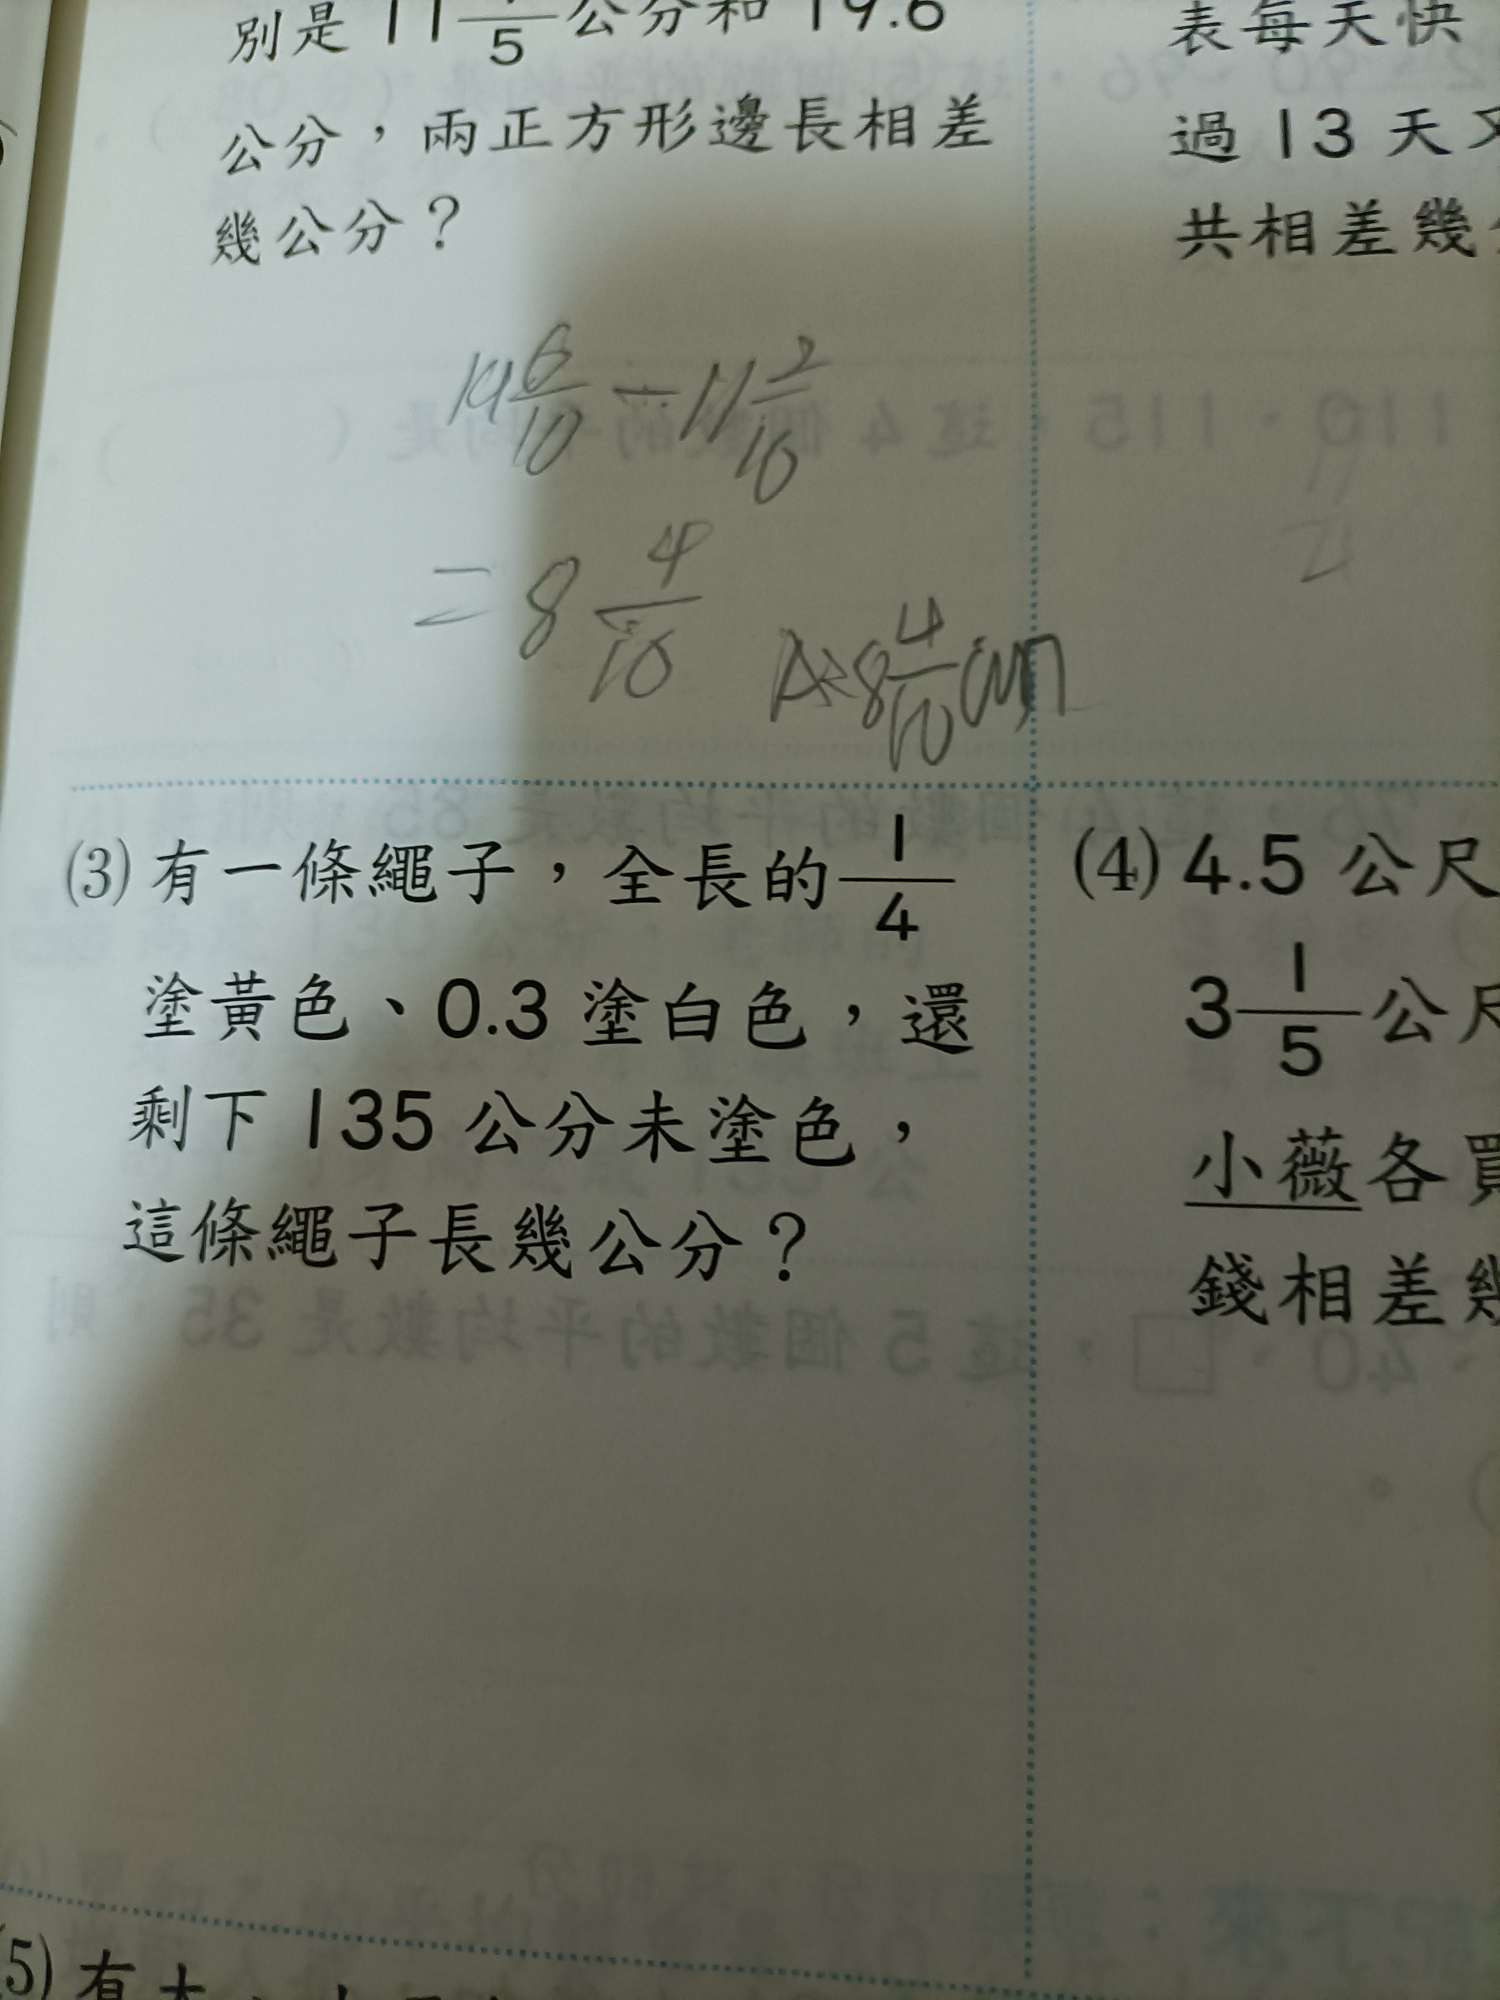 別是 11 /5 公分和 19.6
公分，兩正方形邊長相差
幾公分？
19 6/10 - 11 2/10
= 8 4/10
A: 8 4/10 cm
表每天快
過 13 天又
共相差幾
(3) 有一條繩子，全長的 1/4
塗黃色、0.3 塗白色，還
剩下 135 公分未塗色，
這條繩子長幾公分？
(4) 4.5 公尺
3 1/5 公尺
小薇各買
錢相差幾
(5) 有大